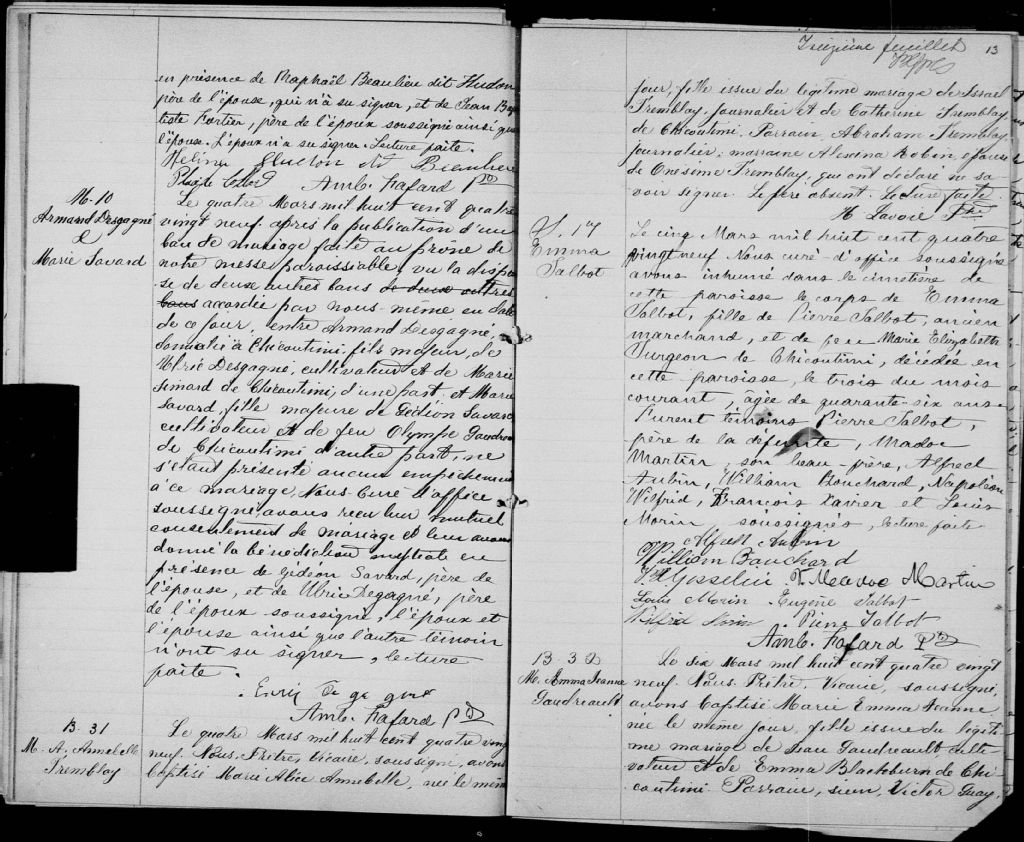 en présence de Raphaël Beaulieu dit Hudon
père de l'épouse, qui n'a su signer, et de Jean Bap
tiste Fortier, père de l'époux soussigné ainsi que
l'épouse. L'époux n'a su signer. Lecture faite.
Hudon dit Beaulieu
Amb. Fafard Ptre
M. 10
Armand Desgagné
&
Marie Savard
Le quatre Mars mil huit cent quatre
vingt neuf, après la publication d'un
ban de mariage faite au prône de
notre messe paroissiale, vu la dispen
se de deux autres bans de deux autres
bans accordée par nous-même en date
de ce jour, entre Armand Desgagné,
domicilié à Chicoutimi, fils majeur, de
Ulric Desgagné, cultivateur et de Marie
Simard de Chicoutimi, d'une part; et Marie
Savard, fille majeure de Gédéon Savard
cultivateur et de feu Olympe Gaudreau
de Chicoutimi d'autre part, ne
s'étant présenté aucun empêchement
à ce mariage, Nous Curé d'office
soussigné, avons reçu leur mutuel
consentement de mariage et leur avons
donné la bénédiction nuptiale en
présence de Gédéon Savard, père de
l'épouse, et de Ulric Degagné, père
de l'époux soussigné, l'époux et
l'épouse ainsi que l'autre témoin
n'ont su signer, lecture
faite.
Amb. Fafard Ptre
B. 31
M. A. Annabelle
Tremblay
Le quatre Mars mil huit cent quatre vingt
neuf. Nous, Prêtre, Vicaire, soussigné, avons
baptisé Marie Alice Annabelle, née le même
Treizième feuillet
13
jour, fille issue du légitime mariage de Israel
Tremblay, journalier et de Catherine Tremblay
de Chicoutimi. Parrain Abraham Tremblay
journalier; marraine Alexina Robin, épouse
de Onésime Tremblay, qui ont déclaré ne sa
voir signer. Le père absent. Lecture faite.
M. Lavoie Ptre
S. 17
Emma
Talbot
Le cinq Mars mil huit cent quatre
vingt neuf Nous curé d'office soussigné
avons inhumé dans le cimetière de
cette paroisse le corps de Emma
Talbot, fille de Pierre Talbot, ancien
marchand, et de feu Marie Elizabeth
Turgeon de Chicoutimi, décédée en
cette paroisse, le trois du mois
courant, âgée de quarante-six ans.
Furent témoins Pierre Talbot,
père de la défunte, Madoc
Martin, son beau-frère, Alfred
Aubin, William Bouchard, Napoléon
Wilfrid, François Xavier et Louis
Morin soussignés, lecture faite
Alfred Aubin
William Bouchard
Gosselin Meadoc Martin
Louis Morin Eugène Talbot
Wilfrid Morin Pierre Talbot
Amb. Fafard Ptre
B 32
M. Emma Jeanne
Gaudreault
Le six Mars mil huit cent quatre vingt
neuf. Nous, Prêtre, Vicaire, soussigné,
avons baptisé Marie Emma Jeanne
née le même jour, fille issue du légiti
me mariage de Jean Gaudreault culti
vateur et de Emma Blackburn de Chi
coutimi. Parrain, sieur, Victor Guay,